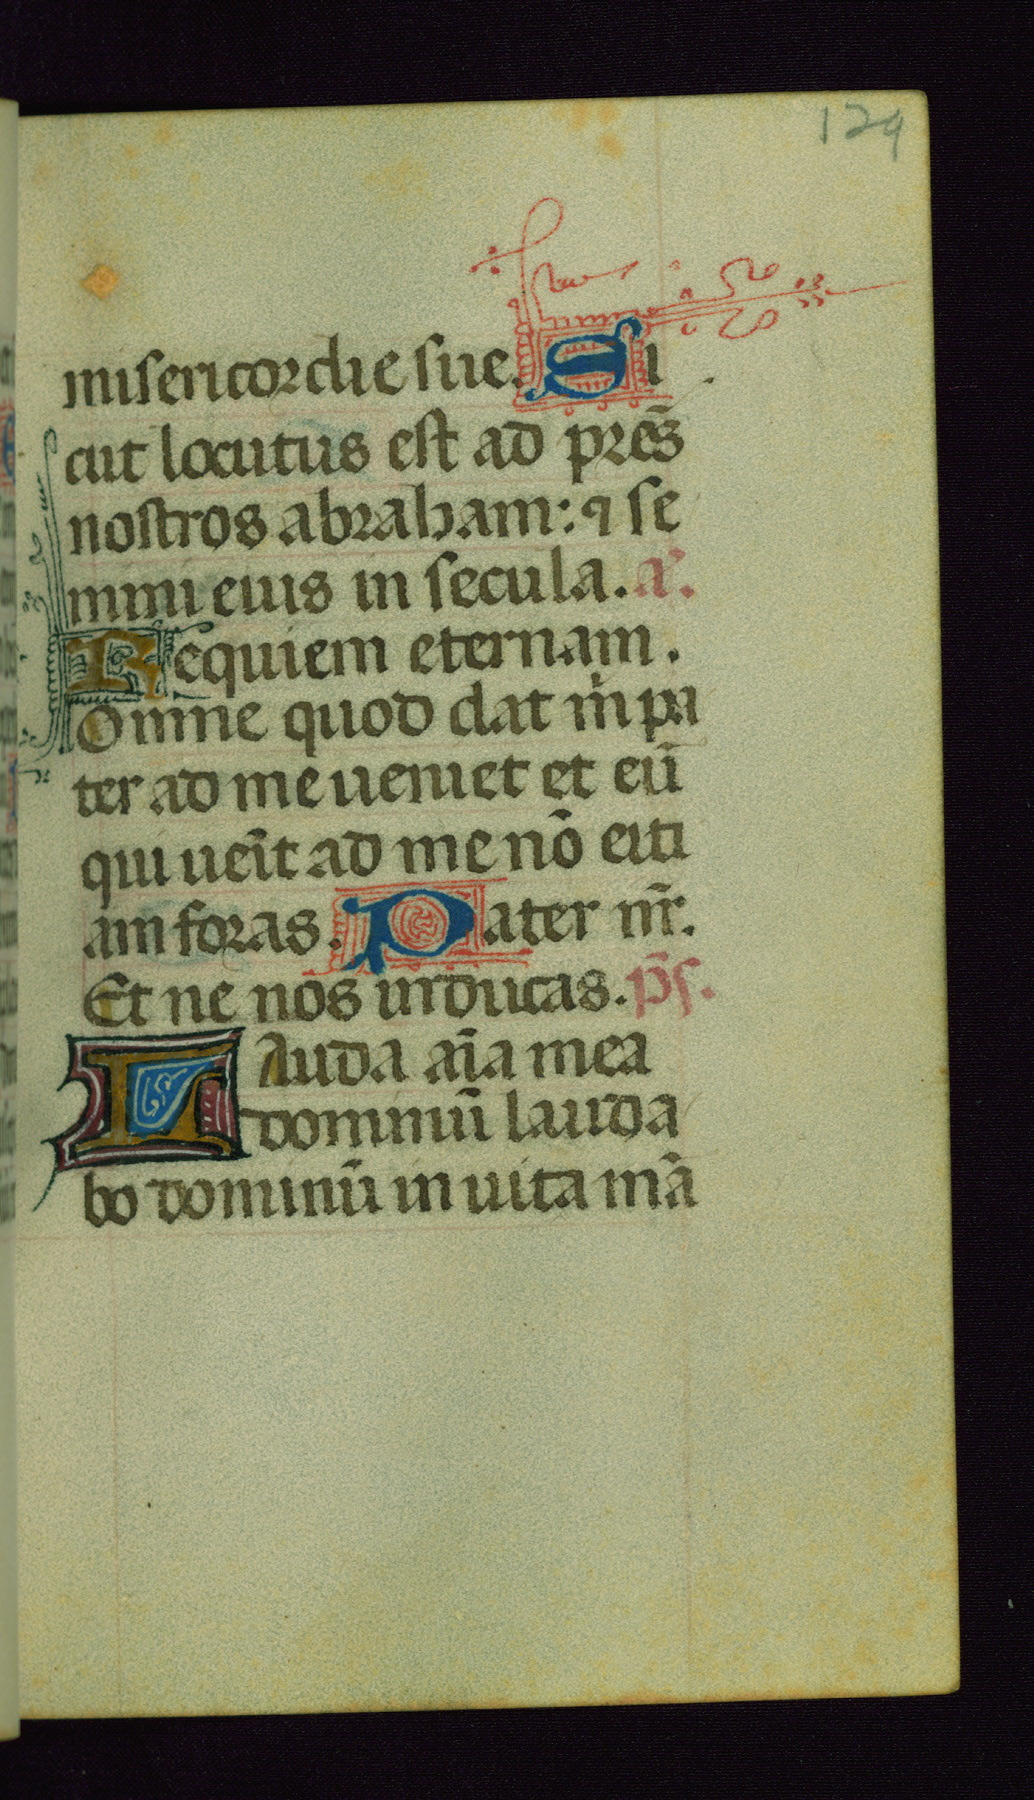 129
misericordie sue. Si
cut locutus est ad pr̃es
nostros abraham: ⁊ se
mini eius in secula. a᷒.
Requiem eternam.
Omne quod dat m̃ pa
ter ad me ueniet et eũ
qui uẽit ad me nõ eiti
am foras. Pater nr̃.
Et ne nos inducas. p̃s.
Lauda aĩa mea
dominũ lauda
bo dominũ in uita mã